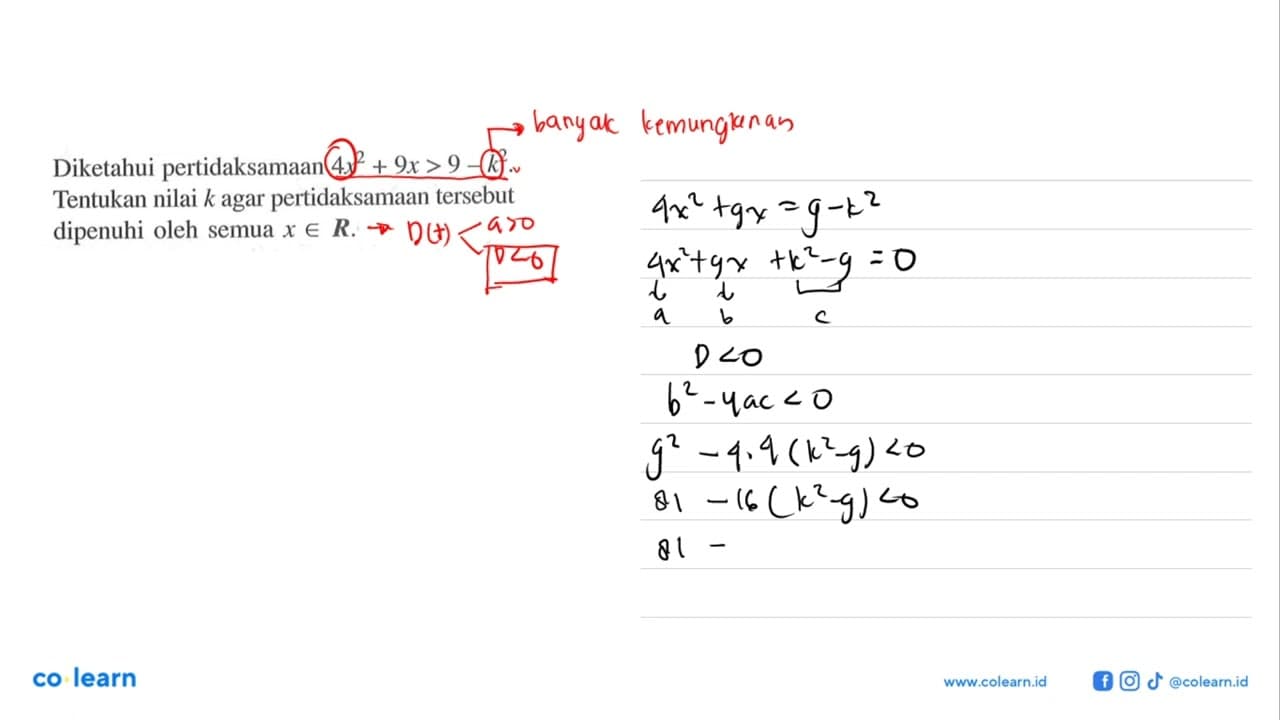 banyak kemungkinan
Diketahui pertidaksamaan 4x² + 9x > 9 – k².
Tentukan nilai k agar pertidaksamaan tersebut
dipenuhi oleh semua x ∈ R. → D(+) < a>0
D<0
4x² + 9x = 9 - k²
4x² + 9x + k² - 9 = 0
a b c
D < 0
b² - 4ac < 0
9² - 4.4 (k² - 9) < 0
81 - 16 (k² - 9) < 0
81 -
co learn
www.colearn.id
@colearn.id